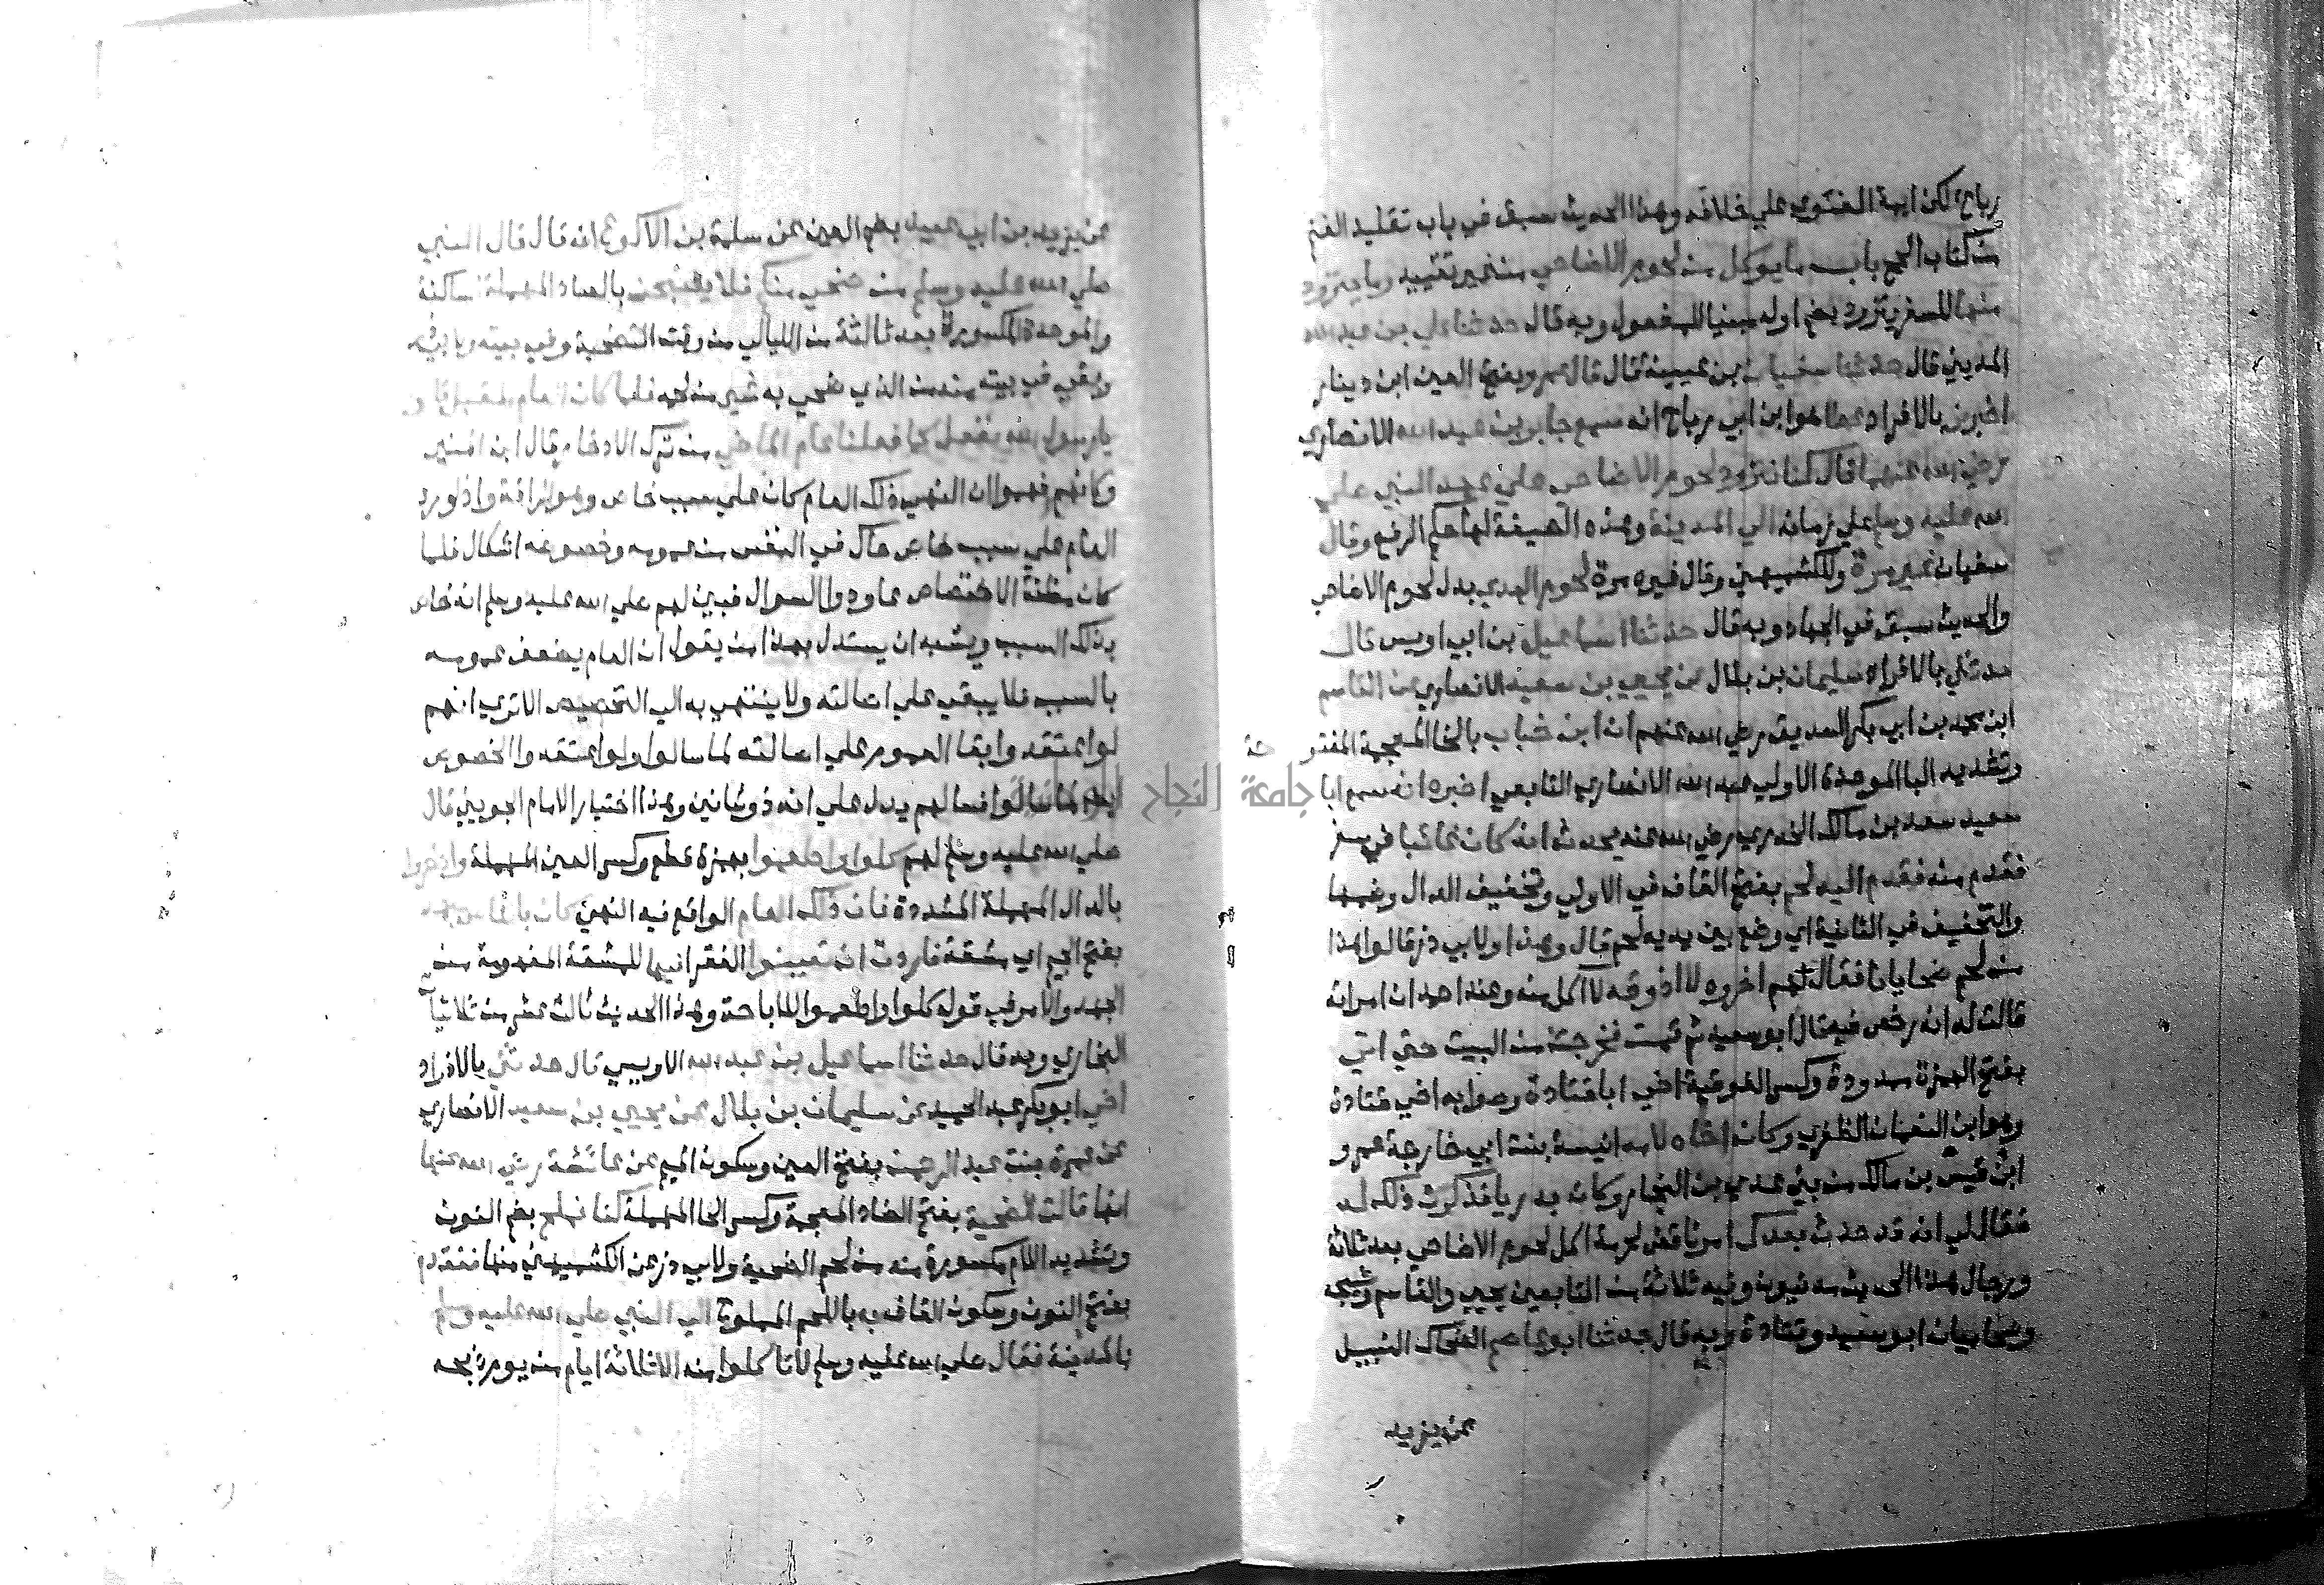 رباح لكن ايمة الفتوى علي خلافه وهذا الحديث سبق في باب تقليد الغنم
من كتاب الحج باب ما يوكل من لحوم الاضاحي من غير تقييد وما يتزود
منها للسفر يتزود بضم اوله مبنيا للمفعول وبه قال حدثنا علي بن عبد الله
المديني قال حدثنا سفيان بن عيينة قال قال عمرو بفتح العين ابن دينار
اخبرني بالافراد عطا هو ابن ابي رباح انه سمع جابر بن عبد الله الانصاري
رضي الله عنهما قال كنا نتزود لحوم الاضاحي علي عهد النبي صلي
الله عليه وسلم علي زمانه الي المدينة وهذه الصيغة لها حكم الرفع وقال
سفيان غير مرة وللكشميهني وقال غيره مرة لحوم الهدي بدل لحوم الاضاحي
والحديث سبق في الجهاد وبه قال حدثنا اسماعيل بن ابي اويس قال
حدثني بالافراد سليمان بن بلال عن يحيي بن سعيد الانصاري عن القاسم
ابن محمد بن ابي بكر الصديق رضي الله عنهم ان ابن خباب بالخا المعجمة المفتوحة
وتشديد البا الموحدة الاولي عبد الله الانصاري التابعي اخبره انه سمع ابا
سعيد سعد بن مالك الخدري رضي الله عنه يحدث انه كان غائبا في سفر
فقدم منه فقدم اليه لحم بفتح القاف في الاولي وتخفيف الدال وضمها
والتخفيف في الثانية اي وضع بين يديه لحم قال وهذا ولابي ذر قالوا هذا
من لحم ضحايانا فقال لهم اخروه لا اذوقه لا اكل منه وعند احمد ان امراته
قالت له انه رخص فيه قال ابو سعيد ثم قمت فخرجت من البيت حتي اتي
بفتح الهمزة ممدودة وكسر الفوقية اخي ابا قتادة وصوابه اخي قتادة
وهو ابن النعمان الظفري وكان اخاه لامه انيسة بنت ابي خارجة عمرو
ابن قيس بن مالك من بني عدي بن النجار وكان بدريا فذكرت ذلك له
فقال لي انه قد حدث بعدك امر ناقض لحرمة اكل لحوم الاضاحي بعد ثلاثة
ورجال هذا الحديث مدنيون وفيه ثلاثة من التابعين يحيي والقاسم وشيخه
وصحابيان ابو سعيد وقتادة وبه قال حدثنا ابو عاصم الضحاك النبيل
عن يزيد
عن يزيد بن ابي عبيد بضم العين عن سلمة بن الاكوع انه قال قال النبي
صلي الله عليه وسلم من ضحي منكم فلا يصبحن بالصاد المهملة الساكنة
والموحدة المكسورة بعد ثالثة من الليالي من وقت التضحية وفي بيته
وبقي في بيته منه من الذي ضحي به شي من لحمه فلما كان العام المقبل قالوا
يا رسول الله نفعل كما فعلنا عام الماضي من ترك الادخار قال ابن المنير
وكانهم فهموا ان النهي ذلك العام كان علي سبب خاص وهو الرافة واذا ورد
العام علي سبب خاص حاك في النفس من عمومه وخصوصه اشكال فلما
كان مظنة الاختصاص عاودوا السوال فبين لهم صلي الله عليه وسلم انه خاص
بذلك السبب ويشبه ان يستدل بهذا من يقول ان العام يضعف عمومه
بالسبب فلا يبقي علي اصالته ولا ينتهي به الي التخصيص الا تري انهم
لو اعتقدوا بقا العموم علي اصالته لما سالوا ولو اعتقدوا الخصوص
ايضا لما سالوا فسوالهم يدل علي انه ذو شانين وهذا اختيار الامام الجويني قال
صلي الله عليه وسلم لهم كلوا واطعموا بهمزة قطع وكسر العين المهملة وادخروا
بالدال المهملة المشددة فان ذلك العام الواقع فيه النهي كان بالناس جهد
بفتح الجيم اي مشقة فاردت ان تعينوا الفقرا فيها للمشقة المفهومة من
الجهد والامر في قوله كلوا واطعموا للاباحة وهذا الحديث ثالث عشر من ثلاثيات
البخاري وبه قال حدثنا اسماعيل بن عبد الله الاويسي قال حدثني بالافراد
اخي ابو بكر عبد الحميد عن سليمان بن بلال عن يحيي بن سعيد الانصاري
عن عمرة بنت عبد الرحمن بفتح العين وسكون الميم عن عائشة رضي الله عنها
انها قالت الضحية بفتح الضاد المعجمة وكسر الحا المهملة كنا نملح بضم النون
وتشديد اللام مكسورة منه من لحم الضحية ولابي ذر عن الكشميهني منها فنقدم
بفتح النون وسكون القاف به باللحم المملوح الي النبي صلي الله عليه وسلم
بالمدينة فقال صلي الله عليه وسلم لا تاكلوا منه الا ثلاثة ايام من يوم ذبحه
جامعة النجاح الوطنية